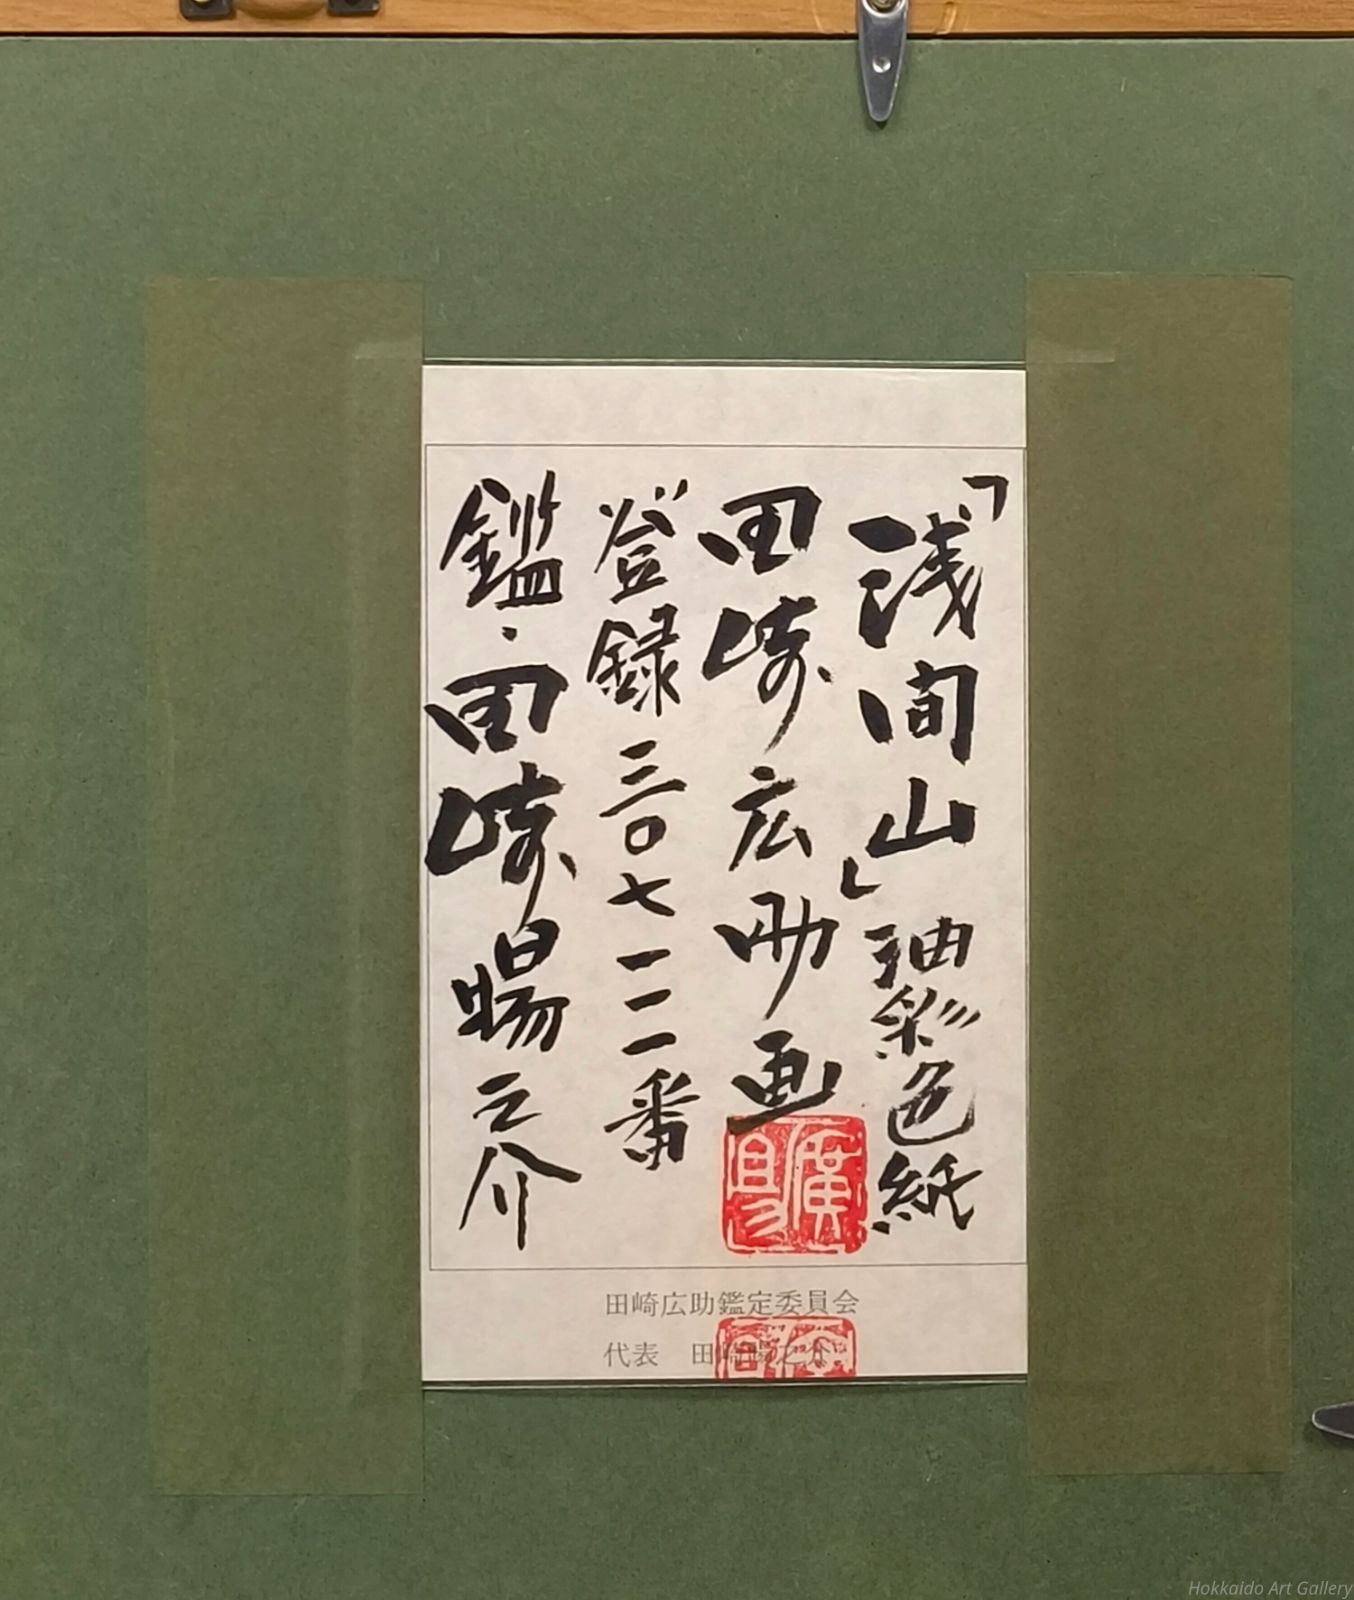 「浅間山」油彩色紙
田崎広助画
登録三〇七一一一番
鑑・田崎暘之介
廣助
田崎広助鑑定委員会
代表 田崎暘之介
Hokkaido Art Gallery